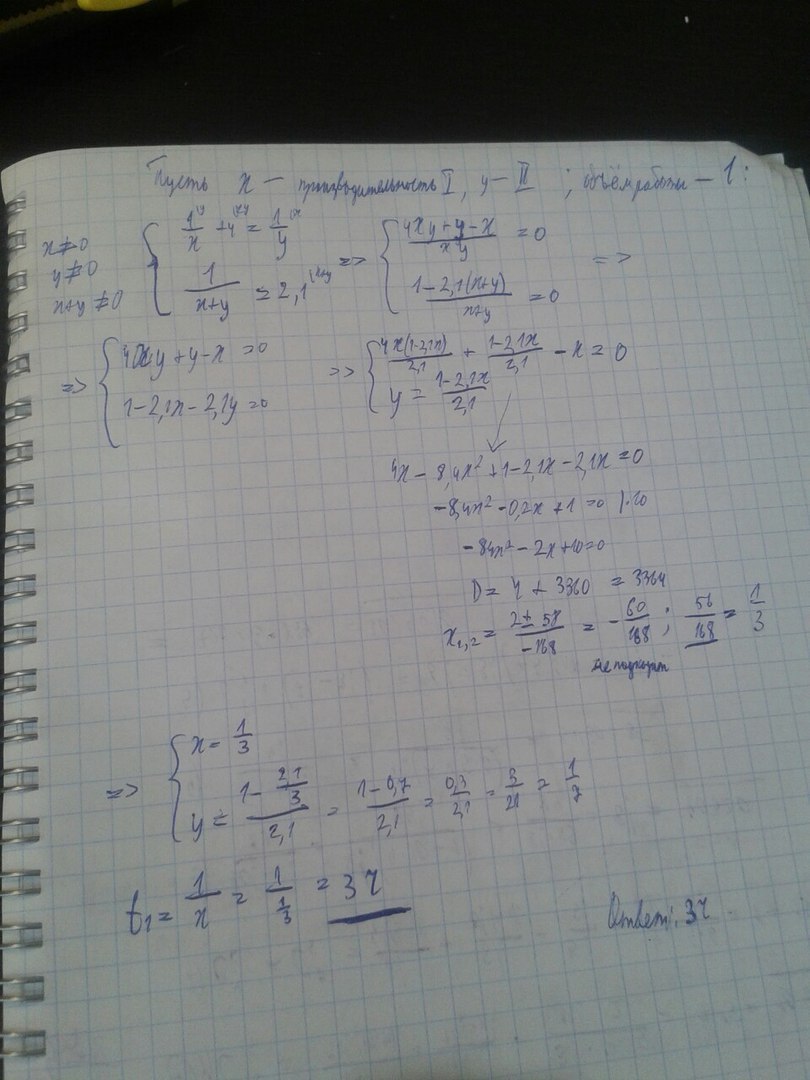 Пусть x – производительность I, y – II ; объём работы – 1:
x≠0
y≠0
x+y≠0
{ 1/x + 4 = 1/y
{ 1/(x+y) = 2,1
=> { (4xy+y-x)/xy = 0
{ (1-2,1(x+y))/(x+y) = 0
=>
=> { 4xy + y - x = 0
{ 1-2,1x-2,1y=0
=> { 4x(1-2,1x)/2,1 + (1-2,1x)/2,1 - x = 0
{ y = (1-2,1x)/2,1
4x - 8,4x² + 1-2,1x-2,1x=0
-8,4x²-0,2x+1=0 |·10
-84x²-2x+10=0
D = 4 + 3360 = 3364
x₁,₂ = (2±58)/-168 = -60/168 ; 56/168 = 1/3
не подходит
=> { x = 1/3
{ y = (1 - 2,1/3)/2,1 = (1-0,7)/2,1 = 0,3/2,1 = 3/21 = 1/7
t₁ = 1/x = 1/(1/3) = 3ч
Ответ: 3ч